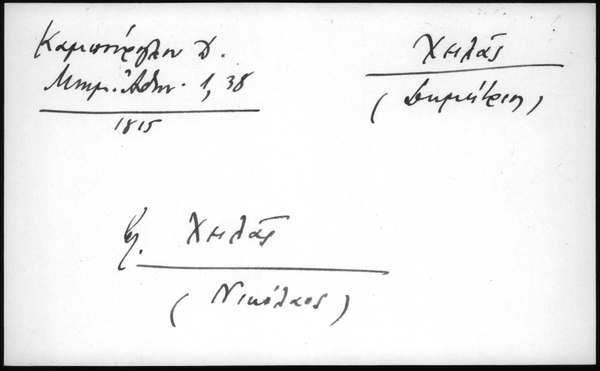 Καμπούρογλου Δ.
Μνημ. Αθην. 1, 38
1815
Χηλάς
(Δημήτριος)
βλ. Χηλάς
(Νικόλαος)